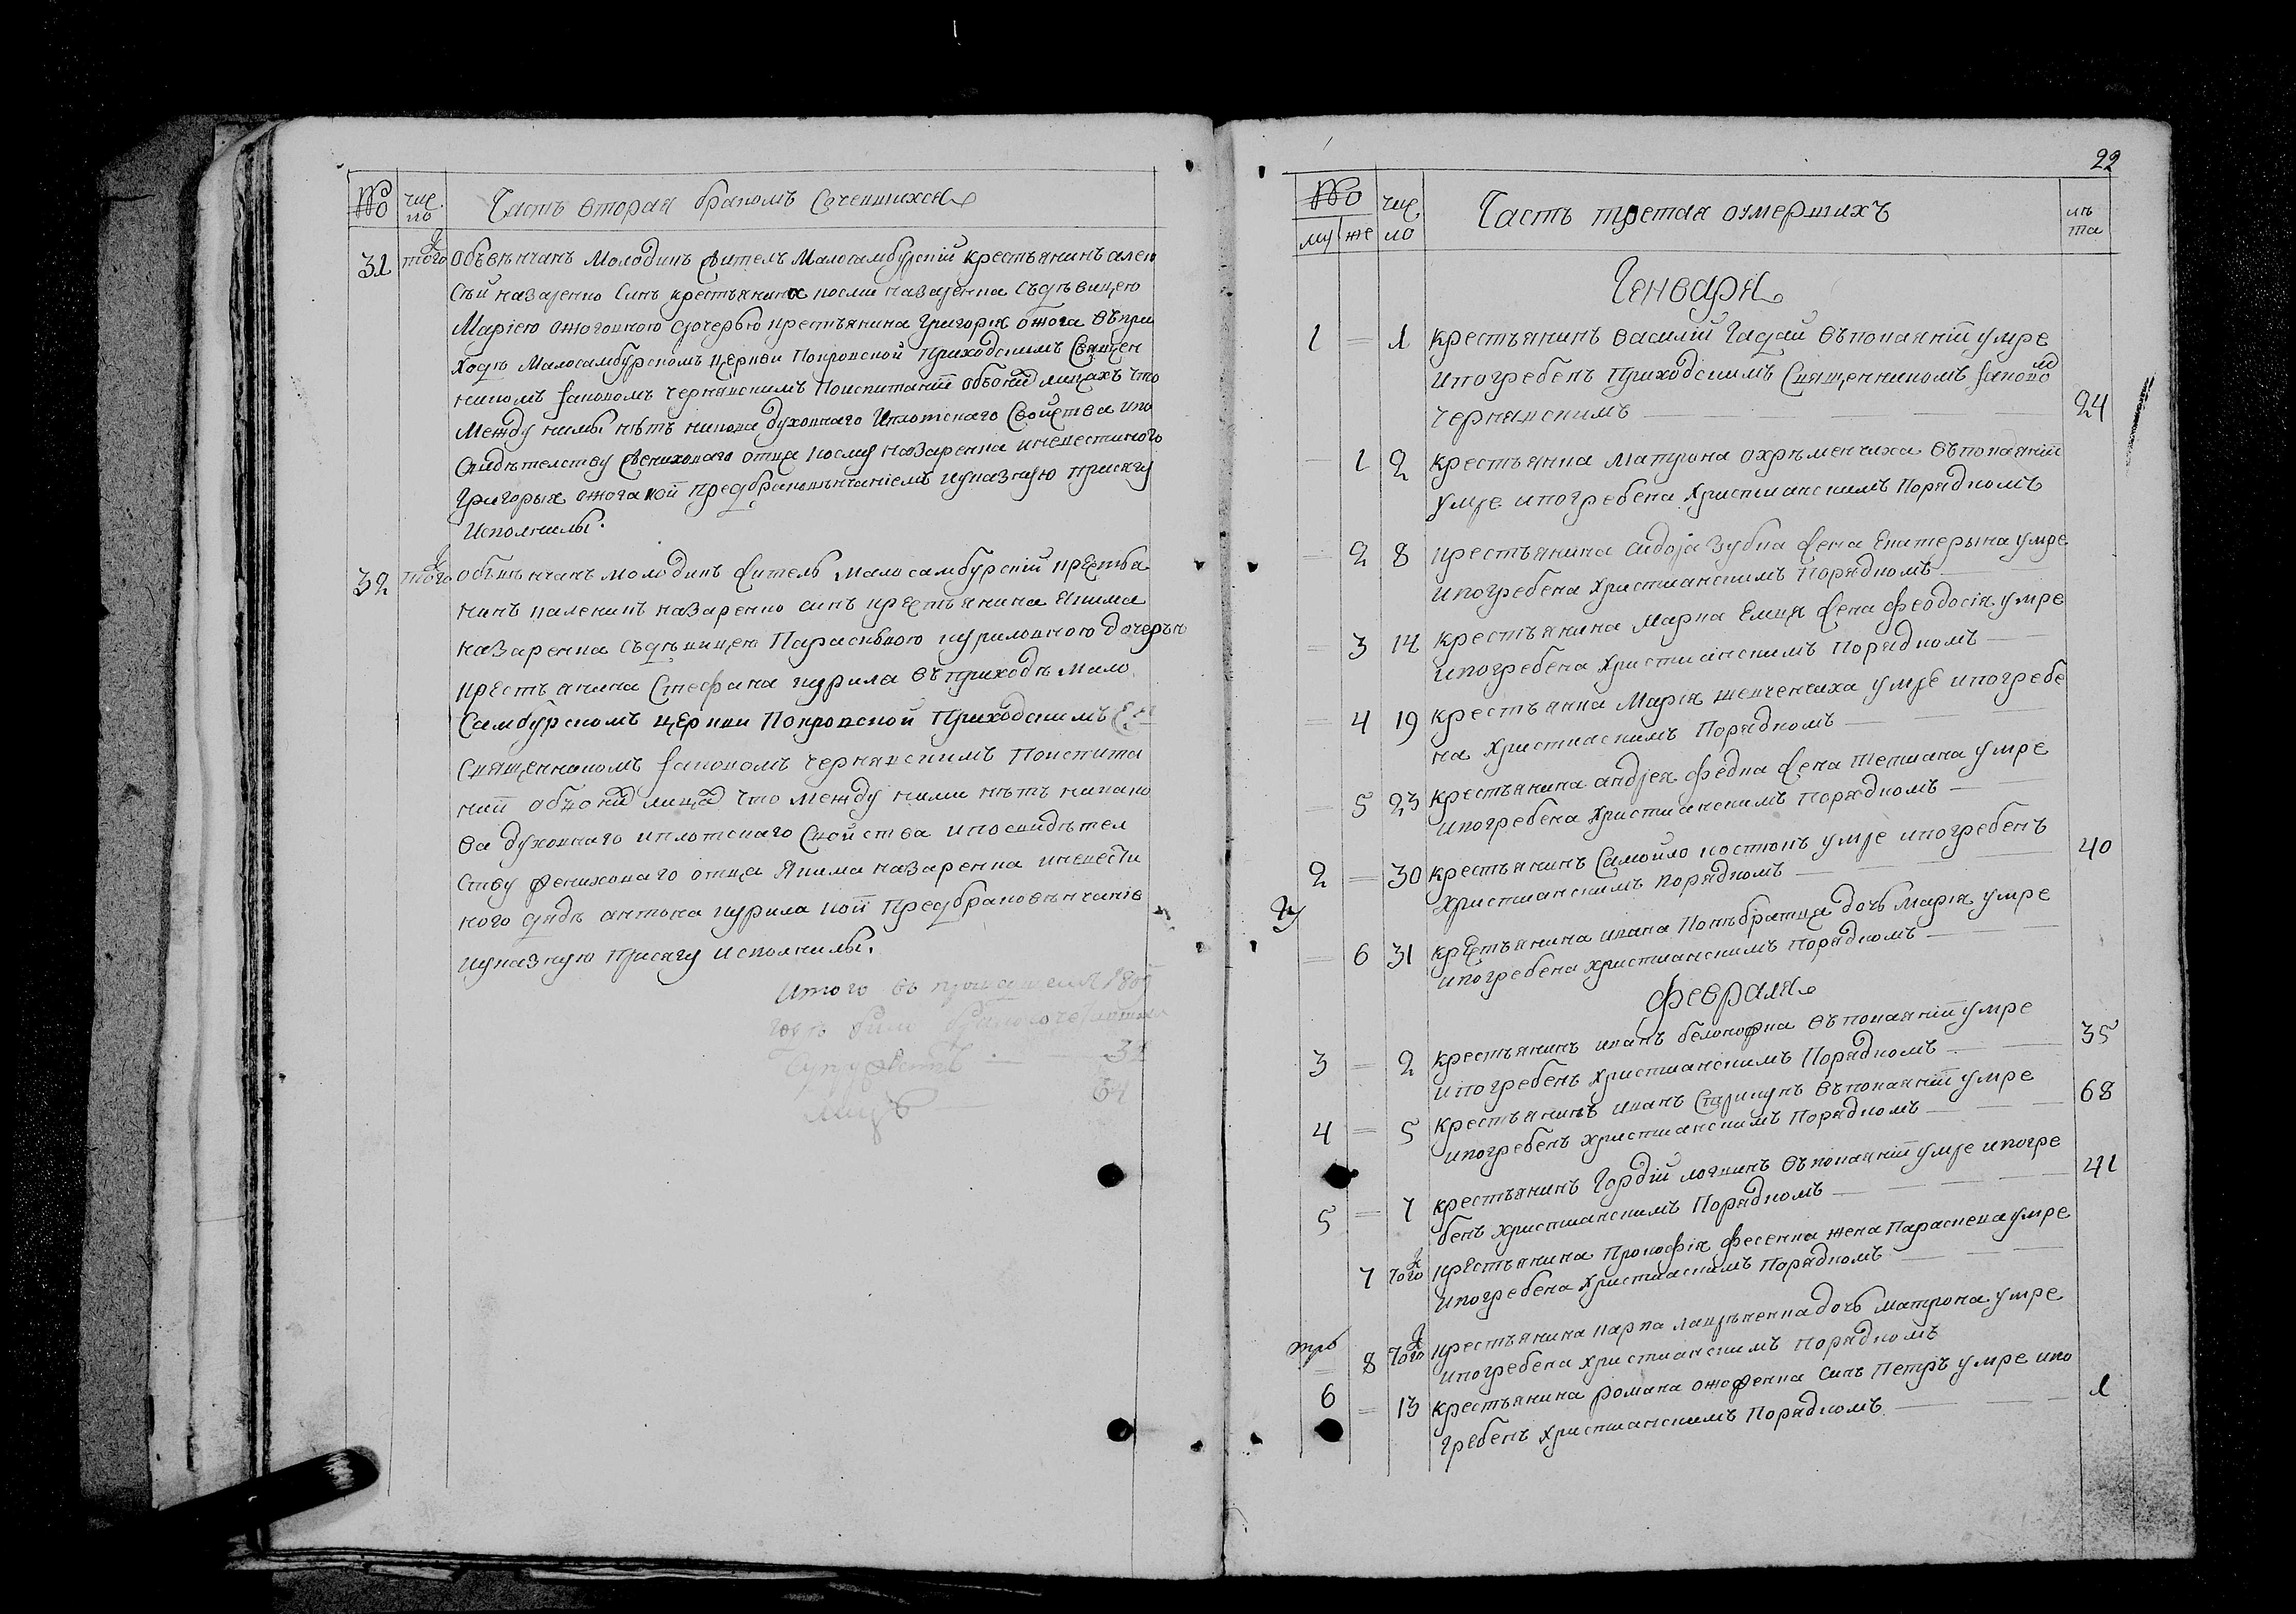 № чис ло Часть вторая бракомъ Сочетшихся
31 тогож Объвѣнчанъ Молодикъ житель Малосамбурскій крестьянинъ алек
сѣй назаренко Синъ крестьянина козми назаренка Съдѣвицею
Маріею ожоговною дочерью крестьянина Григорія ожога въпри
ходѣ Малосамбурскомъ церкви Покровской Приходскимъ Священ
никомъ Іаковомъ Чернявскимъ Поиспитаніи обѣоихъ лицахъ что
Между ними нѣтъ никова духовнаго Иплотскаго Свойства ипо
Свидѣтелству жениховаго отца Космы Назаренка иневестиного
Григорыя ожога кои предбраковѣнчаніемъ иуказную присягу
Исполнилы.
32 тогож объвѣнчанъ молодикъ житель Малосамбурскій крестья
нинъ назаренко синъ крестьянина Якима
назаренка съдѣвицею Параскевою куриловною дочерью
крестьянина Стефана курила въприходѣ Мало
Самбурскомъ церкви Покровской Приходскимъ
Священикомъ Іаковомъ Чернявскимъ Поиспита
нии объоихъ лицахъ что между ними нѣтъ никако
ва духовнаго иплотскаго Свойства ипосвидѣтел
ству жениховаго отца Якима назаренка иневести
ного дядѣ антона курила кои Предбраковѣнчаніе
иуказную присягу исполнилы.
Итого въ 1809
годѣ было
Супружествъ 32
Лицъ 64
22
№ чис ло Часть третая оумершихъ лѣ та
му же
Генваря
1 — 1 крестьянинъ василій Гадай въпокаяніи умре
ипогребенъ Приходскимъ Священникомъ Іаковомъ
чернявскимъ 24
— 1 2 крестьянка Матрона охрѣменчиха въпокаяніи
умре ипогребена Христианскимъ Порядкомъ
— 2 8 крестьянина сидора Зубка жена Екатерына умре
ипогребена Христианскимъ Порядкомъ
— 3 14 крестьянина Марка Емця жена феодосія умре
ипогребена Христианскимъ Порядкомъ
— 4 19 крестьянка Марія шевченчиха умре ипогребе
на Христиаскимъ Порядкомъ
— 5 23 крестьянина андрея федка жена Тетиана умре
ипогребена Христианскимъ порядкомъ
2 — 30 крестьянинъ Самойло костюкъ умре ипогребенъ
христианскимъ порядкомъ 40
— 6 31 крестьянина ивана Потъбратца дочь Марія умре
ипогребена христианскимъ порядкомъ
Февраля
3 — 2 крестьянинъ иванъ белоножка въпокаяніи умре
ипогребенъ христианскимъ Порядкомъ 35
4 — 5 крестьянинъ иванъ Старикунъ въпокаяніи умре
ипогребенъ христианскимъ порядкомъ 68
5 — 7 крестьянинъ Гордій логвинъ въпокаяніи умре ипогре
бенъ христианскимъ Порядкомъ 41
7 тогож крестьянина Прокофія фесенка жена Параскева умре
ипогребена христиаскимъ порядкомъ
— 8 тогож крестьянина карпа лаврѣненка дочь матрона умре
ипогребена христианскимъ порядкомъ
6 — 13 крестьянина романа ожоженка Синъ Петръ умре ипо
гребенъ христианскимъ порядкомъ 1